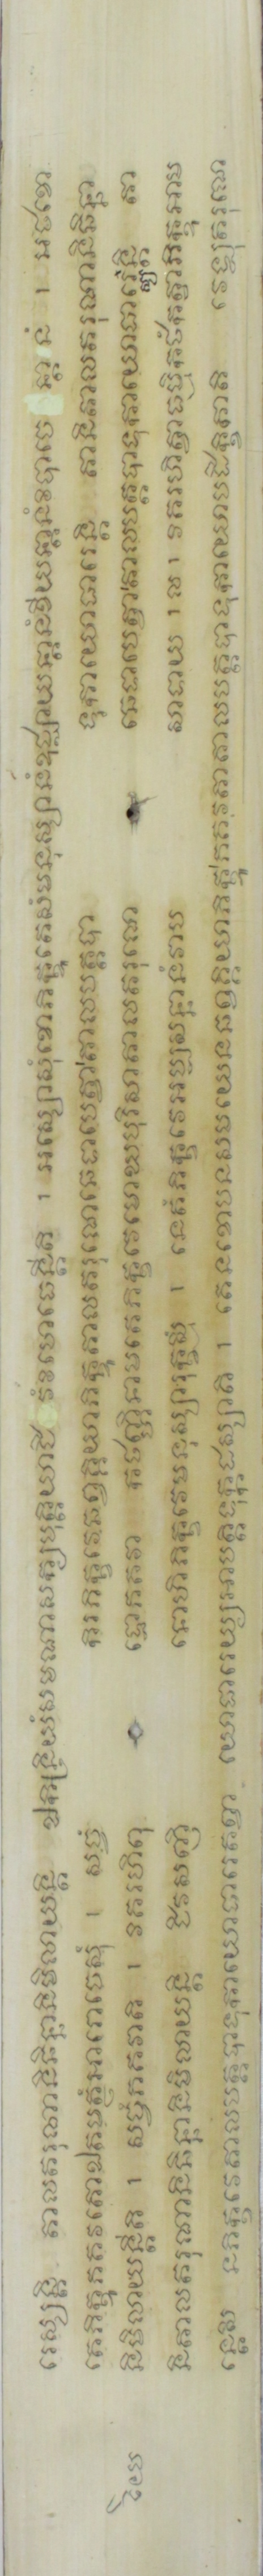 រេស្សន្តិ តាលតរុណានិ ឆិន្នានិ មិលាយន្តិ ឯកិន្ទ្រិយំ សមណា សក្យបុត្តិយា ជីវំ វិហេឋេន្តីតិ ។ អស្សោសុំ ខោ ភិក្ខូ តេសំ មនុស្សានំ ឧជ្ឈាយន្តានំ ខីយន្តានំ វិបាចេន្តានំ ។ អថខោ
តេ ភិក្ខូ ភគវតោ ឯតមត្ថំ អារោចេសុំ ។ សច្ចំ កិរ ភិក្ខវេ ឆព្វគ្គិយា ភិក្ខូ តាលតរុណេ ឆេទាបេត្វា តាលបត្តបាទុកាយោ ធារេន្តិ តានិ តាលតរុណានិ ឆិន្នា
និ មិលាយន្តីតិ ។ សច្ចំ ភគវាតិ ។ វិគរហិ ពុទ្ធោ ភគវា កថញ្ហិ នាម តេ ភិក្ខវេ មោឃបុរិសា តាលតរុណេ ឆេទាបេត្វា តាលបត្តបាទុកាយោ ធារេស្សន្តិ តា
និ តាលតរុណានិ ឆិន្នានិ មិលាយន្តិ ជីវសញ្ញិនោ ហិ ភិក្ខវេ មនុស្សា រុក្ខស្មឹ ។ នេតំ ភិក្ខវេ អប្បសន្នានំ វា បសាទាយ ។ ល ។ វិគរហិត្វា ធម្មិកថំ កត្វា ភិក្ខូ អាម
ន្តេសិ ន ភិក្ខវេ តាលបត្តបាទុកាយោ ធារេតព្វា យោ ធារេយ្យ អាបត្តិ ទុក្កដស្សាតិ ។ តេន ខោ បន សមយេន ឆព្វគ្គិយា ភិក្ខូ ភគវតា តាលបត្តបាទុកាយោ បដិក្ខិត្តាតិ វេឡុតរុណេ